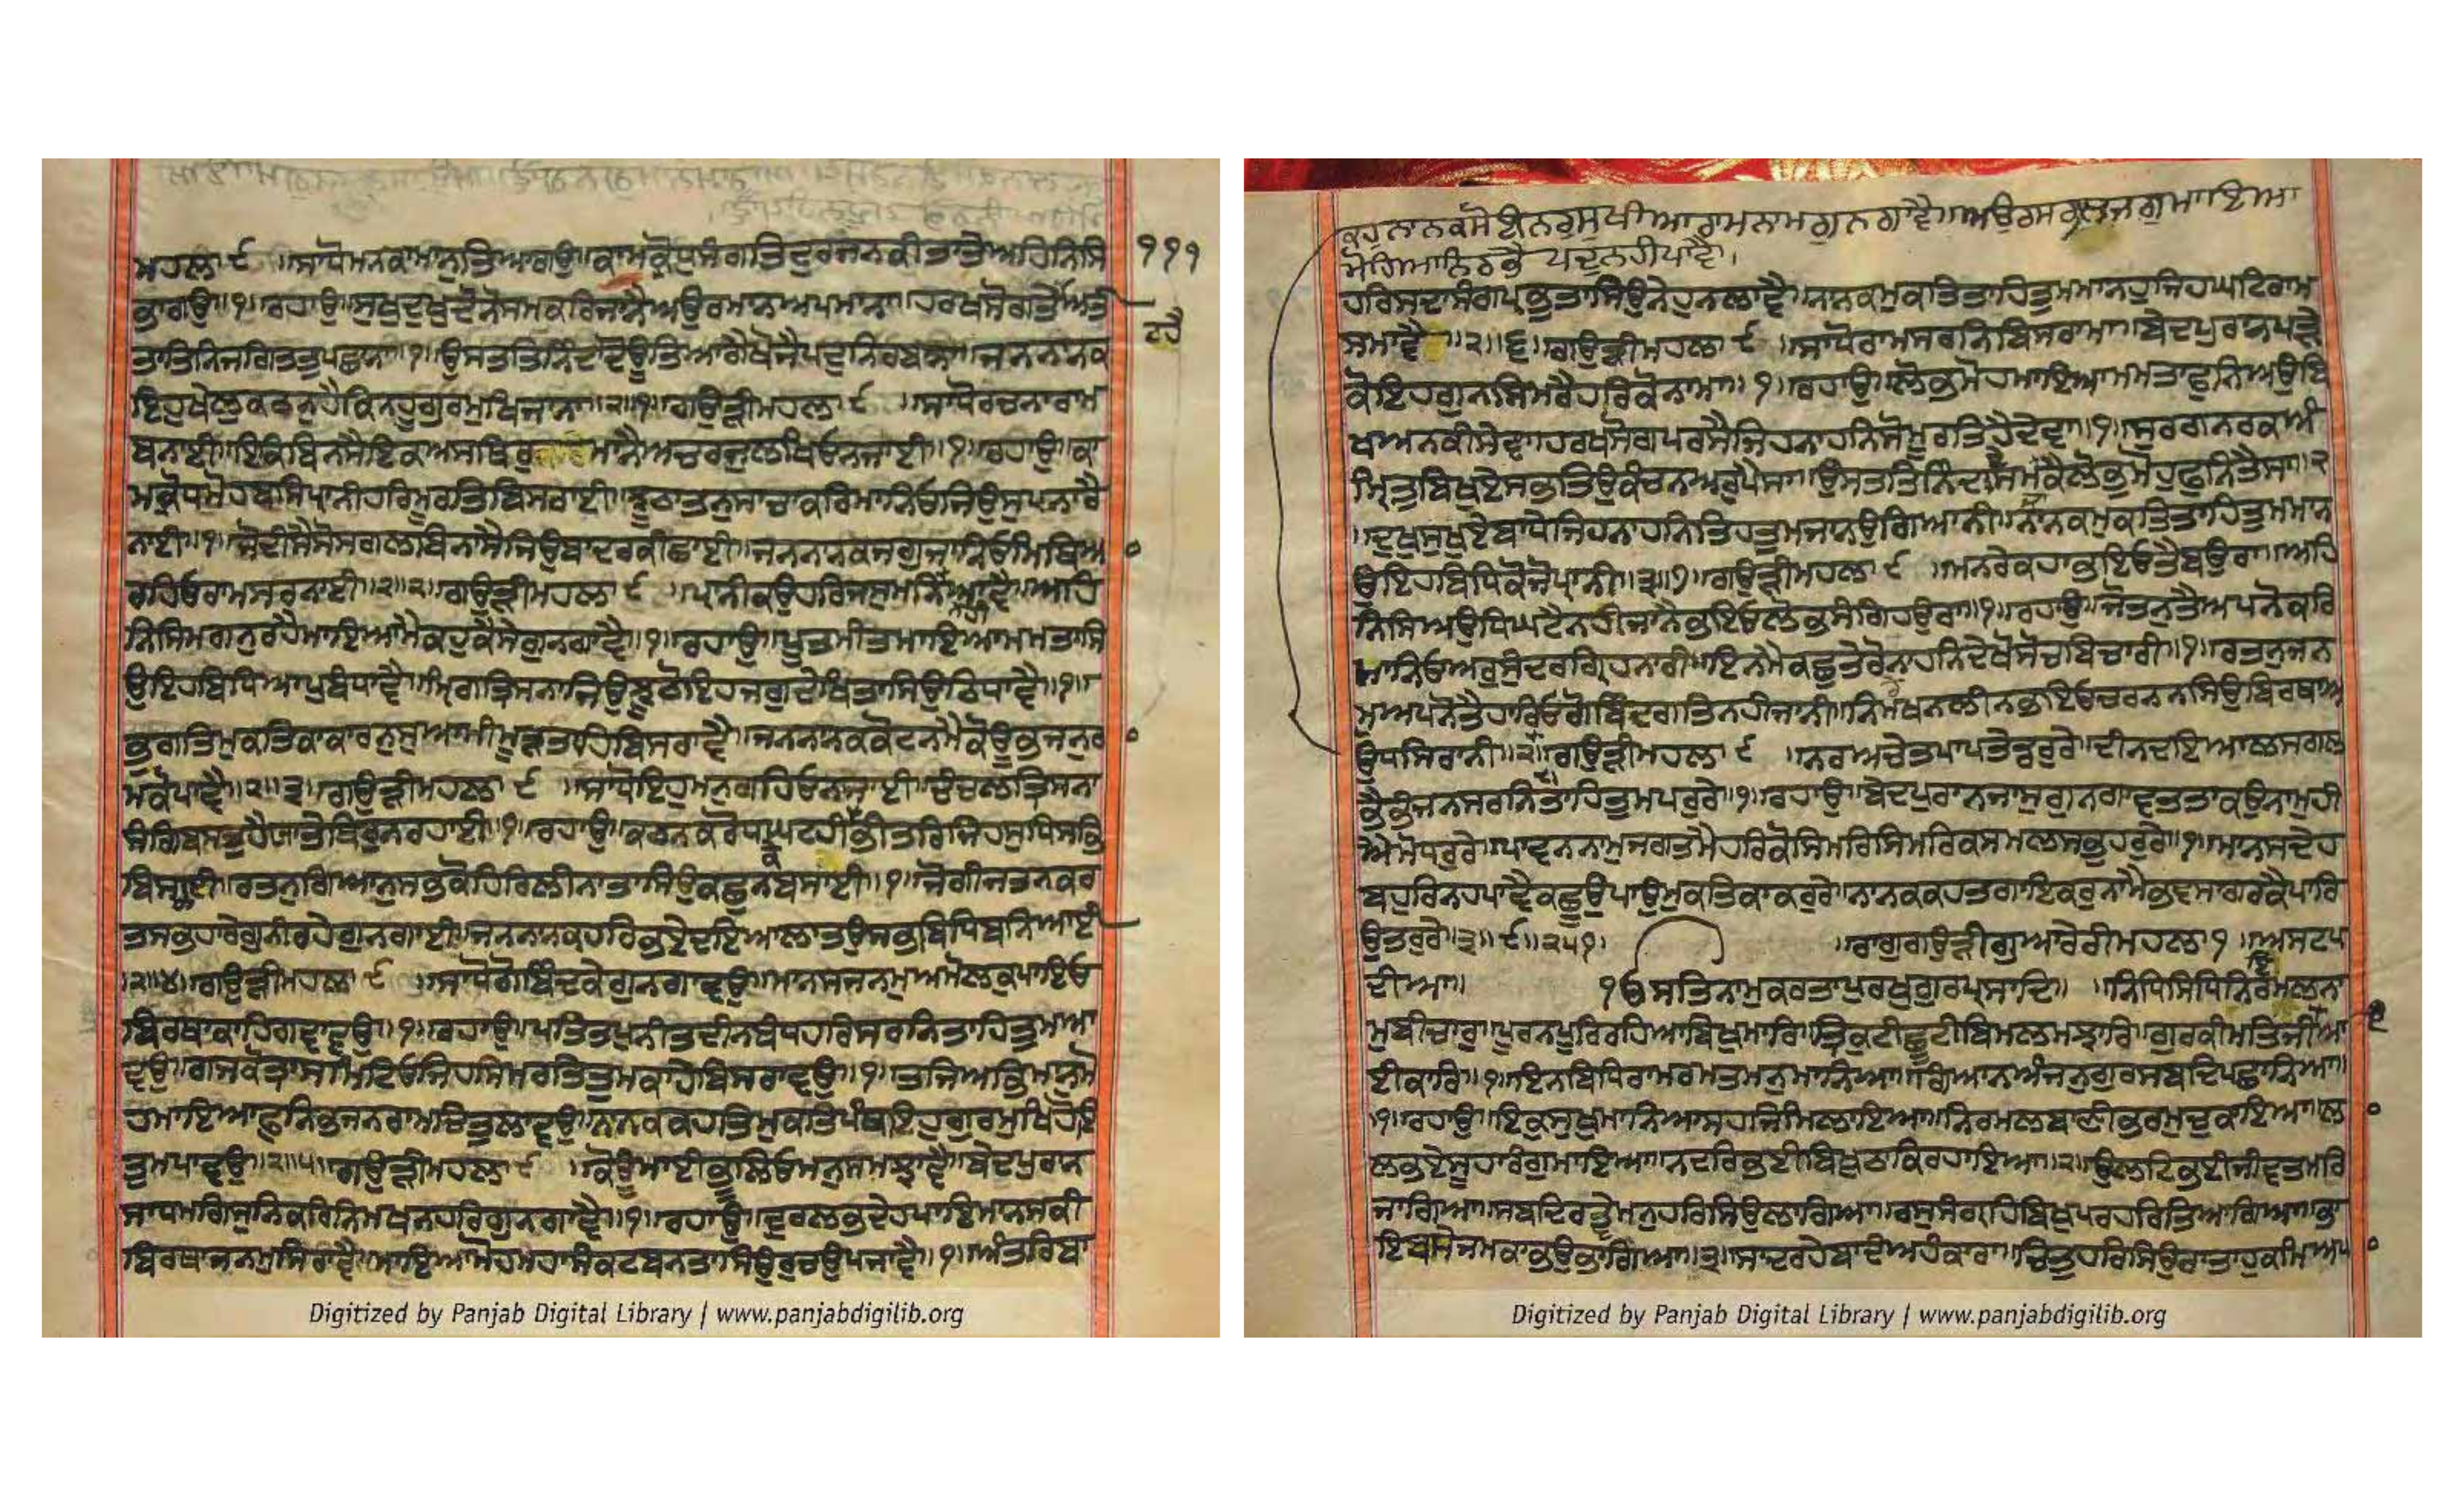 ਮਹਲਾ ੯ ॥ਸਾਧੋਮਨਕਾਮਾਨੁਤਿਆਗਉ॥ਕਾਮਕ੍ਰੋਧੁਸੰਗਤਿਦੁਰਜਨਕੀਤਾਤੇਅਹਿਨਿਸਿ
੧੧੧
ਭਾਗਉ॥੧॥ਰਹਾਉ॥ਸੁਖੁਦੁਖੁਦੋਨੋਸਮਕਰਿਜਾਨੈਅਉਰਮਾਨਅਪਮਾਨਾ॥ਹਰਖਸੋਗਤੇ
ਰਹੈ
ਤਾਤਿਨਿਜਗਿਤਤੁਪਛਾਨਾ॥੧॥ਉਸਤਤਿਨਿੰਦਾਦੋਊਤਿਆਗੈਖੋਜੈਪਦੁਨਿਰਬਾਨਾ॥ਜਨਨਾਨਕ
ਇਹੁਖੇਲੁਕਠਨੁਹੈਕਿਨਹੂਗੁਰਮੁਖਿਜਾਨਾ॥੨॥੧॥ਗਉੜੀਮਹਲਾ ੯ ॥ਸਾਧੋਰਚਨਾਰਾਮ
ਬਨਾਈ॥ਇਕਿਬਿਨਸੈਇਕਅਸਥਿਰੁਮਾਨੈਅਚਰਜੁਲਖਿਓਨਜਾਈ॥੧॥ਰਹਾਉ॥ਕਾ
ਮਕ੍ਰੋਧਮੋਹਬਸਿਪ੍ਰਾਨੀਹਰਿਮੂਰਤਿਬਿਸਰਾਈ॥ਝੂਠਾਤਨੁਸਾਚਾਕਰਿਮਾਨਿਓਜਿਉਸੁਪਨਾਰੈ
ਨਾਈ॥੧॥ਜੋਦੀਸੈਸੋਸਗਲਬਿਨਾਸੈਜਿਉਬਾਦਰਕੀਛਾਈ॥ਜਨਨਾਨਕਜਗੁਜਾਨਿਓਮਿਥਿਆ
ਰਹਿਓਰਾਮਸਰਨਾਈ॥੨॥੨॥ਗਉੜੀਮਹਲਾ ੯ ॥ਪ੍ਰਾਨੀਕਉਹਰਿਜਸੁਮਨਿਆਵੈ॥ਅਹਿ
ਨਿਸਿਮਗਨੁਰਹੈਮਾਇਆਮੈਕਹੁਕੈਸੇਗੁਨਗਾਵੈ॥੧॥ਰਹਾਉ॥ਪੂਤਮੀਤਮਾਇਆਮਮਤਾਸਿ
ਉਇਹਬਿਧਿਆਪੁਬੰਧਾਵੈ॥ਮ੍ਰਿਗਤ੍ਰਿਸਨਾਜਿਉਝੂਠੋਇਹਜਗੁਦੇਖਿਤਾਸਿਉਠਿਧਾਵੈ॥੧॥
ਭੁਗਤਿਮੁਕਤਿਕਾਕਾਰਨੁਸੁਆਮੀਮੂੜਤਾਹਿਬਿਸਰਾਵੈ॥ਜਨਨਾਨਕਕੋਟਨਮੈਕੋਊਭਜਨੁਰ
ਮਕੋਪਾਵੈ॥੨॥੩॥ਗਉੜੀਮਹਲਾ ੯ ॥ਸਾਧੋਇਹੁਮਨੁਗਹਿਓਨਜਾਈ॥ਚੰਚਲਤ੍ਰਿਸਨਾ
ਸੰਗਿਬਸਤੁਹੈਯਾਤੇਥਿਰੁਨਰਹਾਈ॥੧॥ਰਹਾਉ॥ਕਠਨਕਰੋਧਘਟਹੀਭੀਤਰਿਜਿਹਸੁਧਿਸਭਿ
ਬਿਸਰਾਈ॥ਰਤਨੁਗਿਆਨੁਸਭਕੋਹਿਰਿਲੀਨਾਤਾਸਿਉਕਛੁਨਬਸਾਈ॥੧॥ਜੋਗੀਜਤਨਕਰ
ਤਸਭਹਾਰੇਗੁਨੀਰਹੇਗੁਨਗਾਈ॥ਜਨਨਾਨਕਹਰਿਭਏਦਇਆਲਾਤਉਸਭਬਿਧਿਬਨਿਆਈ
॥੨॥੪॥ਗਉੜੀਮਹਲਾ ੯ ॥ਸਾਧੋਗੋਬਿੰਦਕੇਗੁਨਗਾਵਉ॥ਮਾਨਸਜਨਮੁਅਮੋਲਕੁਪਾਇਓ
ਬਿਰਥਾਕਾਹਿਗਵਾਵਉ॥੧॥ਰਹਾਉ॥ਪਤਿਤਪੁਨੀਤਦੀਨਬੰਧਹਰਿਸਰਨਿਤਾਹਿਤੁਮਆ
ਵਉ॥ਗਜਕੋਤ੍ਰਾਸੁਮਿਟਿਓਜਿਹਸਿਮਰਤਿਤੁਮਕਾਹੇਬਿਸਰਾਵਉ॥੧॥ਤਜਿਅਭਿਮਾਨੁਮੋ
ਹਮਾਇਆਫੁਨਿਭਜਨਰਾਮਚਿਤੁਲਾਵਉ॥ਨਾਨਕਕਹਤਮੁਕਤਿਪੰਥਇਹੁਗੁਰਮੁਖਿਹੋਇ
ਤੁਮਪਾਵਉ॥੨॥੫॥ਗਉੜੀਮਹਲਾ ੯ ॥ਕੋਊਮਾਈਭੂਲਿਓਮਨੁਸਮਝਾਵੈ॥ਬੇਦਪੁਰਾਨ
ਸਾਧਮਗਸੁਨਿਕਰਿਨਿਮਖਨਹਰਿਗੁਨਗਾਵੈ॥੧॥ਰਹਾਉ॥ਦੁਰਲਭਦੇਹਪਾਇਮਾਨਸਕੀ
ਬਿਰਥਾਜਨਮੁਸਿਰਾਵੈ॥ਮਾਇਆਮੋਹਮਹਾਸੰਕਟਬਨਤਾਸਿਉਰੁਚਉਪਜਾਵੈ॥੧॥ਅੰਤਰਿਬਾ
Digitized by Panjab Digital Library | www.panjabdigilib.org
ਕਹੁਨਾਨਕਸੋਈਨਰੁਸੁਖੀਆਰਾਮਨਾਮਗੁਨਗਾਵੈ॥ਅਉਰਸਗਲਜਗੁਮਾਇਆ
ਮੋਹਿਆਨਿਰਭੈ ਪਦੁਨਹੀਪਾਵੈ।
ਹਰਿਸਦਾਸੰਗਿਪ੍ਰਭੁਤਾਸਿਉਨੇਹੁਨਲਾਵੈ॥ਨਾਨਕਮੁਕਤਿਤਾਹਿਤੁਮਮਾਨਹੁਜਿਹਘਟਿਰਾਮ
ਸਮਾਵੈ ॥੨॥੬॥ਗਉੜੀਮਹਲਾ ੯ ॥ਸਾਧੋਰਾਮਸਰਨਿਬਿਸਰਾਮਾ॥ਬੇਦਪੁਰਾਨਪੜੇ
ਕੋਇਹਗੁਨਸਿਮਰੈਹਰਿਕੋਨਾਮਾ॥੧॥ਰਹਾਉ॥ਲੋਭਮੋਹਮਾਇਆਮਮਤਾਫੁਨਿਅਉਬਿ
ਖਅਨਕੀਸੇਵਾ॥ਹਰਖਸੋਗਪਰਸੈਜਿਹਨਾਹਨਿਸੋਮੂਰਤਿਹੈਦੇਵਾ॥੧॥ਸੁਰਗਨਰਕਅੰ
ਮ੍ਰਿਤੁਬਿਖੁਏਸਭਤਿਉਕੰਚਨਅਰੁਪੈਸਾ॥ਉਸਤਤਿਨਿੰਦਾਸਮਕੈਲੋਭੁਮੋਹੁਫੁਨਿਤੈਸਾ॥੨
॥ਦੁਖੁਸੁਖੁਏਬਾਧੇਜਿਹਨਾਹਨਿਤਿਹਤੁਮਜਾਨਉਗਿਆਨੀ॥ਨਾਨਕਮੁਕਤਿਤਾਹਿਤੁਮਮਾਨ
ਉਇਹਬਿਧਿਕੋਜੋਪ੍ਰਾਨੀ॥੩॥੭॥ਗਉੜੀਮਹਲਾ ੯ ॥ਮਨਰੇਕਹਾਭਇਓਤੈਬਉਰਾ॥ਅਹਿ
ਨਿਸਿਅਉਧਿਘਟੈਨਹੀਜਾਨੈਭਇਓਲੋਭਸੰਗਿਹਉਰਾ॥੧॥ਰਹਾਉ॥ਜੋਤਨੁਤੈਅਪਨੋਕਰਿ
ਮਾਨਿਓਅਰੁਸੁੰਦਰਗ੍ਰਿਹਨਾਰੀ॥ਇਨਮੈਕਛੁਤੇਰੋਨਾਹਨਿਦੇਖੋਸੋਚਬਿਚਾਰੀ॥੧॥ਰਤਨੁਜਨ
ਮਅਪਨੋਤੈਹਾਰਿਓਗੋਬਿੰਦਗਤਿਨਹੀਜਾਨੀ॥ਨਿਮਖਨਲੀਨਭਇਓਚਰਨਨਸਿਉਬਿਰਥਾਅ
ਉਧਸਿਰਾਨੀ॥੨॥ਗਉੜੀਮਹਲਾ ੯ ॥ਨਰਅਚੇਤਪਾਪਤੇਡਰੁਰੇ॥ਦੀਨਦਇਆਲਸਗਲ
ਭੈਭੰਜਨਸਰਨਿਤਾਹਿਤੁਮਪਰੁਰੇ॥੧॥ਰਹਾਉ॥ਬੇਦਪੁਰਾਨਜਾਸੁਗੁਨਗਾਵਤਤਾਕਉਨਾਮੁਹੀ
ਐਮੋਧਰੁਰੇ॥ਪਾਵਨਨਾਮੁਜਗਤਮੈਹਰਿਕੋਸਿਮਰਿਸਿਮਰਿਕਸਮਲਸਭਹਰੁਰੇ॥੧॥ਮਾਨਸਦੇਹ
ਬਹੁਰਿਨਹਪਾਵੈਕਛੂਉਪਾਉਮੁਕਤਿਕਾਕਰੁਰੇ॥ਨਾਨਕਕਹਤਗਾਇਕਰੁਨਾਮੈਭਵਸਾਗਰਕੈਪਾਰਿ
ਉਤਰੁਰੇ॥੨॥੯॥੨੫੧॥ ॥ਰਾਗੁਗਉੜੀਗੁਆਰੇਰੀਮਹਲਾ ੧ ॥ਅਸਟਪ
ਦੀਆ॥ ੧ੳਸਤਿਨਾਮੁਕਰਤਾਪੁਰਖੁਗੁਰਪ੍ਰਸਾਦਿ॥ ॥ਨਿਧਿਸਿਧਿਨਿਰਮਲਨਾ
ਮੁਬੀਚਾਰੁ॥ਪੂਰਨਪੂਰਿਰਹਿਆਬਿਖੁਮਾਰਿ॥ਤ੍ਰਿਕੁਟੀਛੂਟੀਬਿਮਲਮਝਾਰਿ॥ਗੁਰਕੀਮਤਿਜੀਆ
ਈਕਾਰਿ॥੧॥ਇਨਬਿਧਿਰਾਮਰਮਤਮਨੁਮਾਨਿਆ॥ਗਿਆਨਅੰਜਨੁਗੁਰਸਬਦਿਪਛਾਨਿਆ॥
੧॥ਰਹਾਉ॥ਇਕੁਸੁਖੁਮਾਨਿਆਸਹਜਿਮਿਲਾਇਆ॥ਨਿਰਮਲਬਾਣੀਭਰਮੁਚੁਕਾਇਆ॥ਲਾ
ਲਭਏਸੂਹਾਰੰਗੁਮਾਇਆ॥ਨਦਰਿਭਈਬਿਖੁਠਾਕਿਰਹਾਇਆ॥੨॥ਉਲਟਿਭਈਜੀਵਤਮਰਿ
ਜਾਗਿਆ॥ਸਬਦਿਰਵੇਮਨੁਹਰਿਸਿਉਲਾਗਿਆ॥ਰਸੁਸੰਗ੍ਰਹਿਬਿਖੁਪਰਹਰਿਤਿਆਗਿਆ॥ਭਾ
ਇਬਸੇਜਮਕਾਭਉਭਾਗਿਆ॥੩॥ਸਾਦਰਹੇਬਾਦੰਅਹੰਕਾਰਾ॥ਚਿਤੁਹਰਿਸਿਉਰਾਤਾਹੁਕਮਿਅਪ
Digitized by Panjab Digital Library | www.panjabdigilib.org